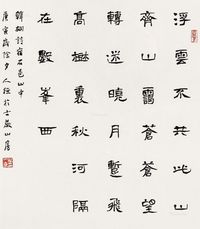 浮雲不共此山
齊山靄蒼蒼望
轉迷曉月暫飛
高樹裏秋河隔
在數峯西
韓翃詩宿石邑山中
庚寅歲除夕 山房